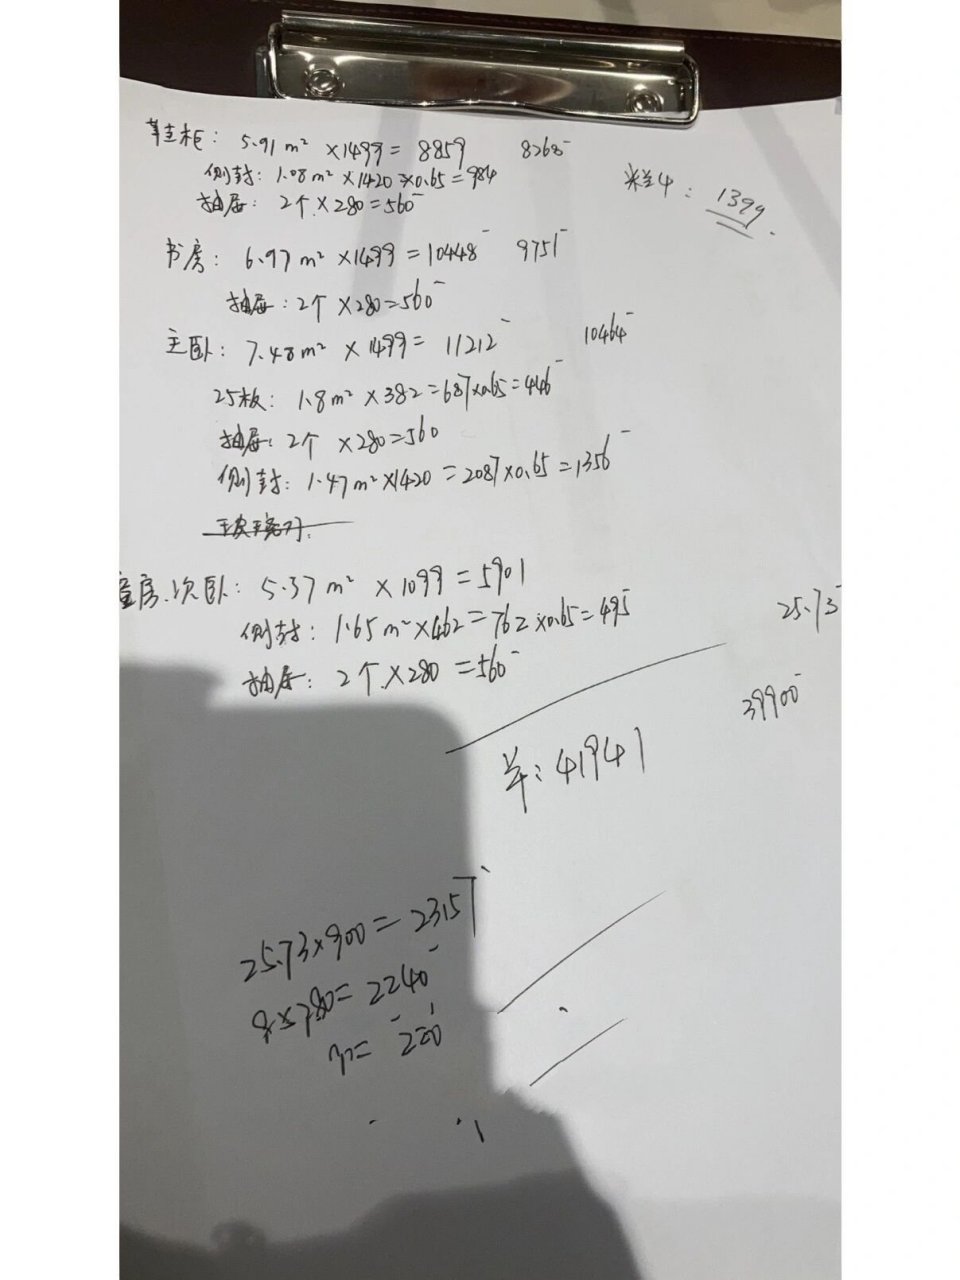 鞋柜: 5.91m² ×1499= 8859 8268
侧封: 1.08m²×1420×0.65=984
抽屉: 2个×280=560
米兰4: 1399
书房: 6.97m²×1499=10448 9751
抽屉: 2个×280=560
主卧: 7.48m²×1499= 11212 10464
25板: 1.8m²×382=687×0.65=446
抽屉: 2个 ×280=560
侧封: 1.47m²×1420=2087×0.65=1356
童房.次卧: 5.37m² ×1099=5901
侧封: 1.65m²×462=762×0.65=495
25.73
抽屉: 2个×280=560
39900
羊: 41941
25.73×900=23157
8×280=2240